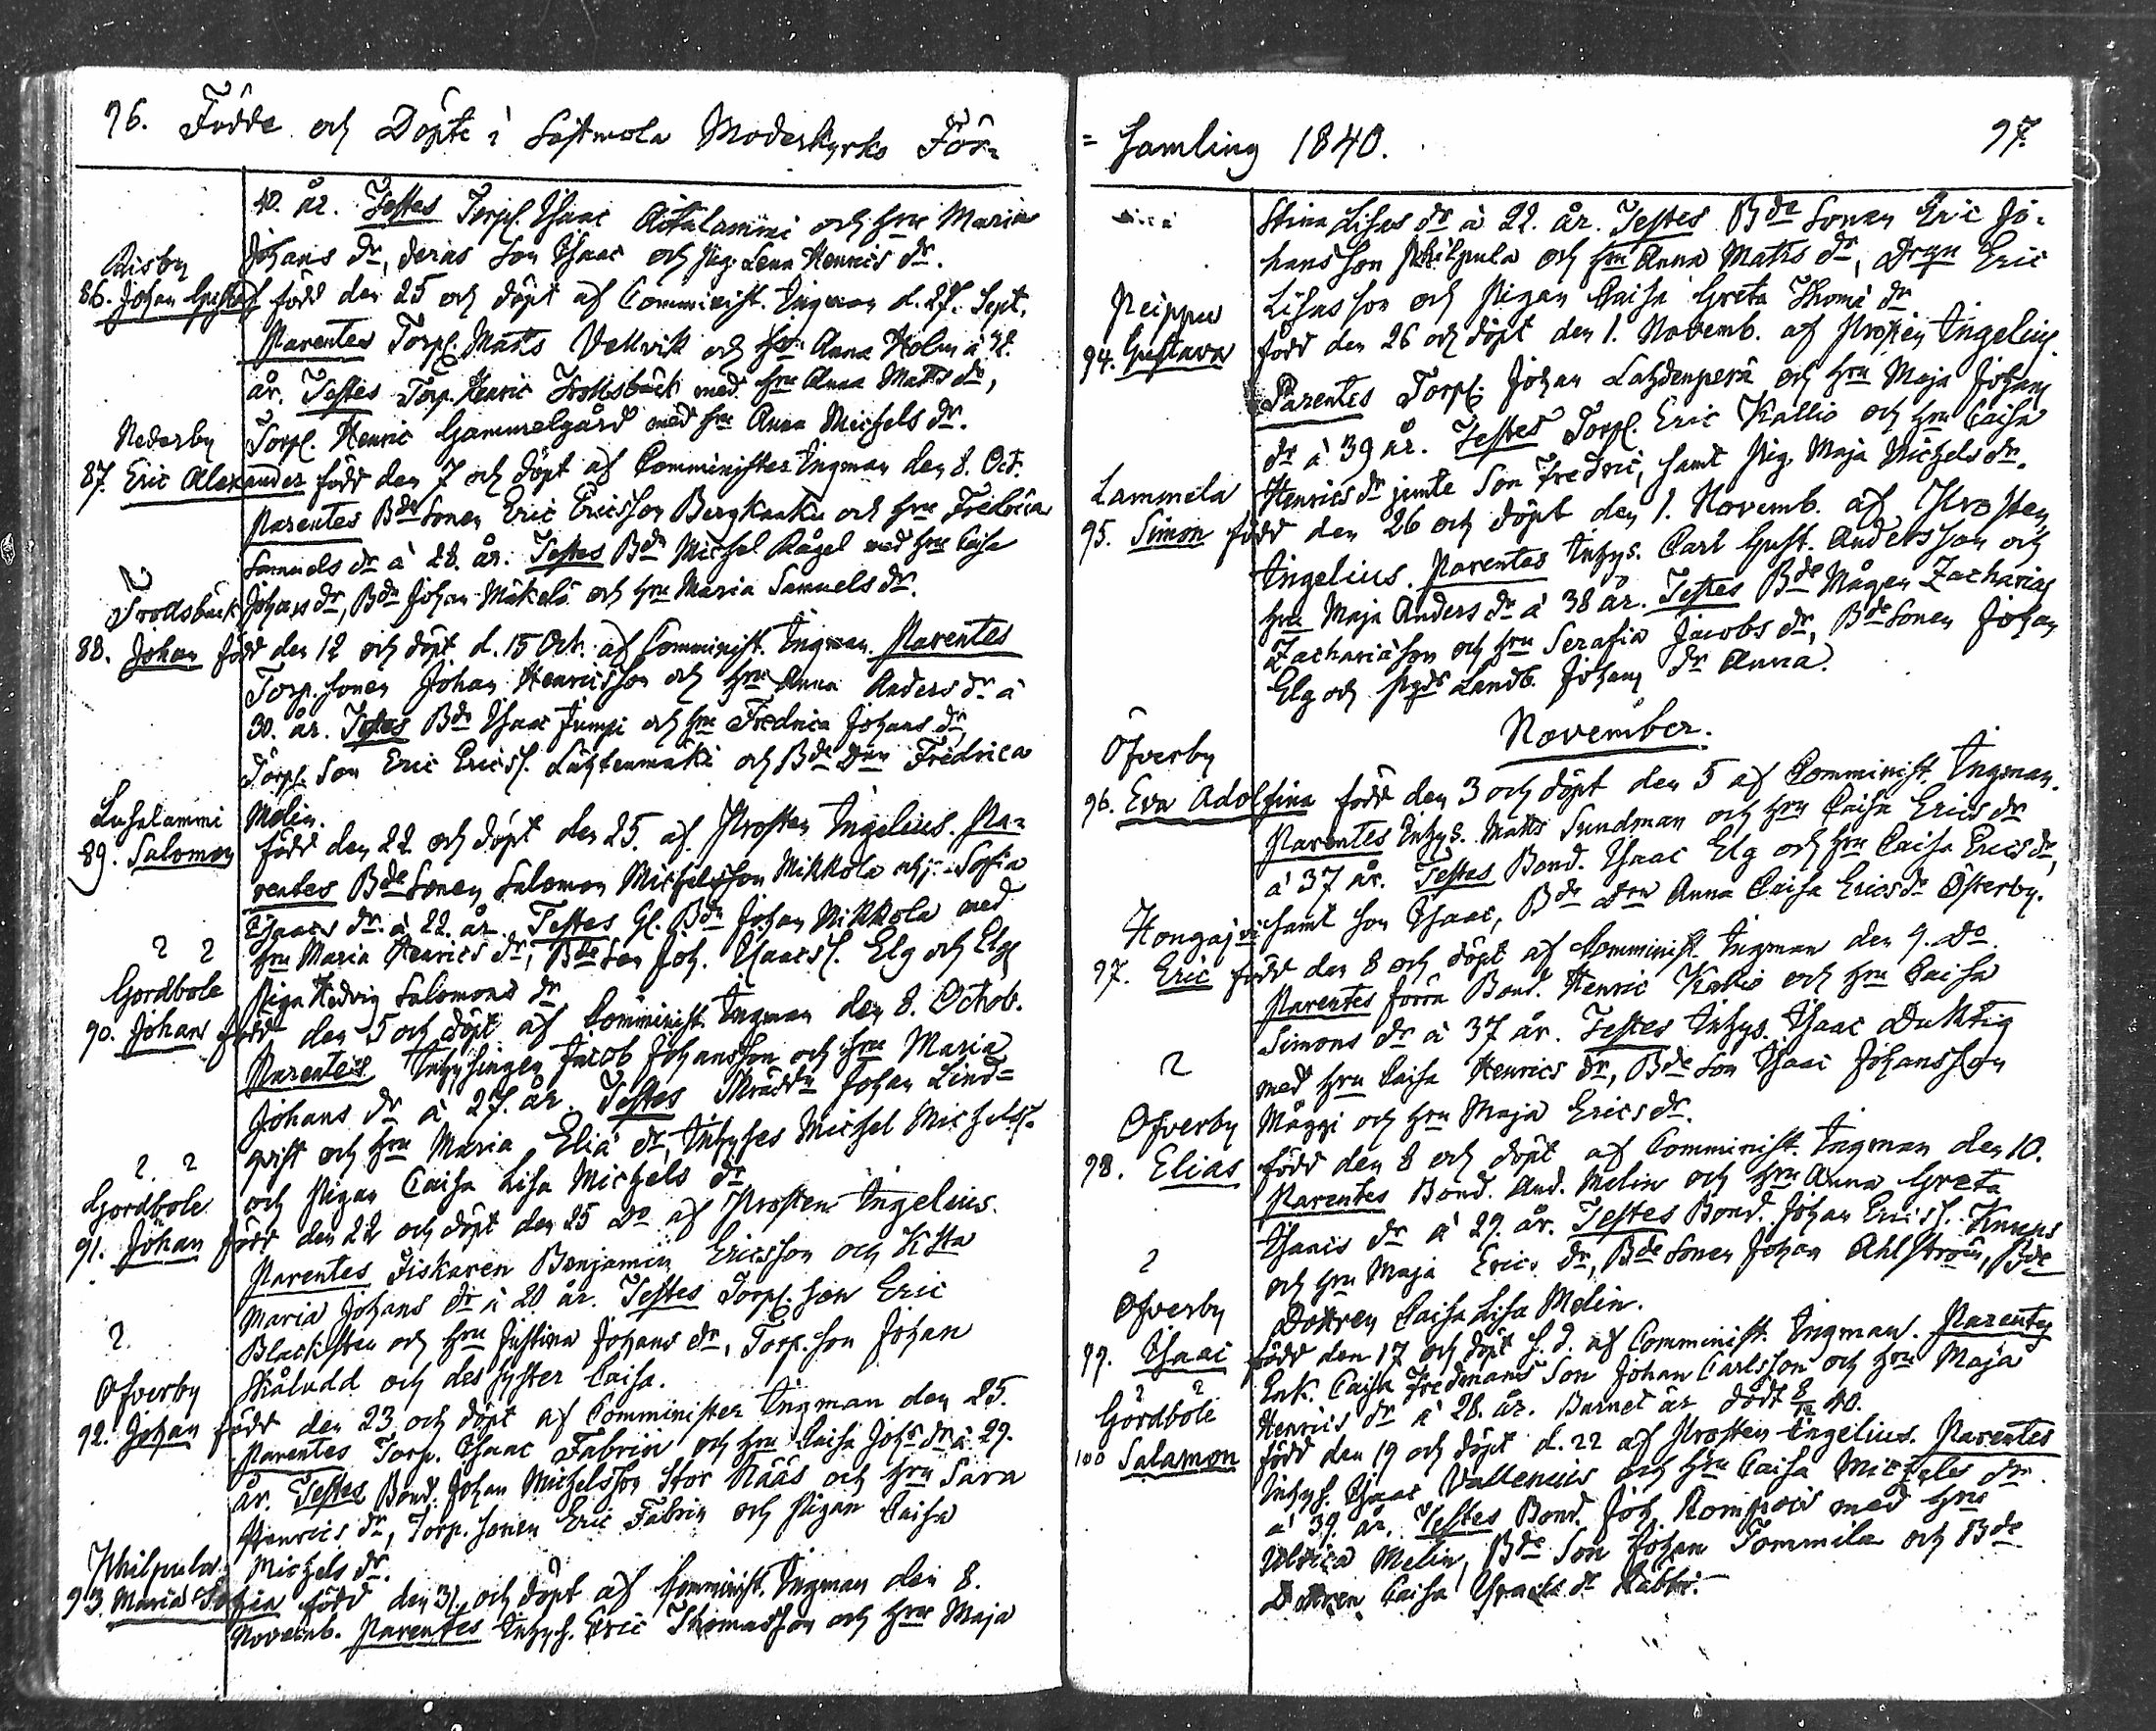 96. Födde och Döpte i Sastmola Moderkyrko För=
40. år. Testes Torp. Isaac Aitalammi och Hru Maria
Johans dr, deras Son Isaac och Pig. Lena Henrics dr.
Risby
86. Johan Gustaf född den 25 och döpt af Comminist. Ingman d. 27. Sept.
Parentes Torp. Matts Vellvik och Hru Anna Holm à 32.
år. Testes Torp. Henric Trollsbäck med Hru Anna Matts dr,
Torp. Henric Gammelgård med Hru Anna Michels dr.
Nederby
87. Eric Alexander född den 7 och döpt af Comminister Ingman den 8. Oct.
Parentes Bde Sonen Eric Ericsson Bergkanku och Hru Fredrica
Samuels dr à 28. år. Testes Bdn Michel Rågel med Hru Caisa
Johans dr, Bdn Johan Mäkelä och Hru Maria Samuels dr.
Trollsbäck
88. Johan född den 12 och döpt d. 15 Oct. af Comminist. Ingman. Parentes
Torp. Sonen Johan Henricsson och Hru Anna Anders dr à
30. år. Testes Bdn Isaac Jumpi och Hru Fredrica Johans dr
Torp. Son Eric Ericss. Lähtenmäki och Bde Dtn Fredrica
Melin.
Luhalammi
89. Salomon född den 22 och döpt den 25. af Prosten Ingelius. Pa=
rentes Bde Sonen Salomon Michelsson Mikkola och Sofia
Isaacs dr. à 22. år. Testes Gl. Bdn Johan Mikkola med
Hru Maria Henrics dr, Bde Son Joh. Isaacss. Elg och Elgs
Piga Hedvig Salomons dr
Gordbole
90. Johan född den 5 och döpt af Comminist. Ingman den 8. Octob.
Parentes Inhysingen Jacob Johansson och Hru Maria
Johans dr à 27. år. Testes Skräddn Johan Lind=
qvist och Hru Maria Eliæ dr, Inhyses Michel Michelss.
och Pigan Caisa Lisa Michels dr
Gordbole
91. Johan född den 22 och döpt den 25 do af Prosten Ingelius.
Parentes Fiskaren Benjamin Ericsson och Hsta
Maria Johans dr à 20 år. Testes Torp. Son Eric
Blacksten och Hru Justina Johans dr, Torp. Son Johan
Skåludd och des syster Caisa.
Ofverby
92. Johan född den 23 och döpt af Comminister Ingman den 25.
Parentes Torp. Isaac Fabrin och Hru Caisa Johs dr à 29.
år. Testes Bond. Johan Michelsson Stor Nääs och Hru Sara
Henrics dr, Torp. Sonen Eric Fabrin och Pigan Caisa
Michels dr.
Philpula
93. Maria Sofia född den 31. och döpt af Comminist. Ingman den 8.
Novemb. Parentes Inhys. Eric Thomasson och Hru Maja
= samling 1840. 97.
Stina Lisas dr à 22. år. Testes Bde Sonen Eric Jo-
hansson Philpula och Hru Anna Matts dr, Drgn Eric
Lisasson och Pigan Caisa Greta Thomæ dr
Peippu
94. Gustava född den 26 och döpt den 1. Novemb. af Prosten Ingelius.
Parentes Torp. Johan Lahdenperä och Hru Maja Johans
dr à 39 år. Testes Torp. Eric Kallio och Hru Caisa
Henrics dr jemte Son Fredric, samt Pig. Maja Michels dr.
Lammela
95. Simon född den 26 och döpt den 1. Novemb. af Prosten
Ingelius. Parentes Inhys. Carl Gust. Andersson och
Hru Maja Anders dr à 38 år. Testes Bde Mågen Zacharias
Zachariæson och Hru Serafia Jacobs dr, Bde Sonen Johan
Elg och Landb. Johans dr Anna.
November.
Öfverby
96. Eva Adolfina född den 3 och döpt den 5 af Comminist. Ingman.
Parentes Inhys. Matts Sundman och Hru Caisa Erics dr
à 37 år. Testes Bond. Isaac Elg och Hru Caisa Erics dr,
samt Son Isaac, Bde Dtn Anna Caisa Erics dr Österby.
Hongaj
97. Eric född den 8 och döpt af Comminist. Ingman den 9. do
Parentes förra Bond. Henric Kallio och Hru Caisa
Simons dr à 37 år. Testes Inhys. Isaac Duktig
med Hru Caisa Henrics dr, Bde Son Isaac Johansson
Mäggi och Hru Maja Erics dr.
Ofverby
98. Elias född den 8 och döpt af Comminist. Ingman den 10.
Parentes Bond. And. Melin och Hru Anna Greta
Isaacs dr à 29. år. Testes Bond. Johan Ericss. Knuuns
och Hru Maja Erics dr, Bde Sonen Johan Ahlström, Bde
Dottren Caisa Lisa Melin.
Ofverby
99. Isaac född den 17 och döpt s. d. af Comminist. Ingman. Parentes
Enk. Caisa Fredmans Son Johan Carlsson och Hru Maja
Henrics dr à 28. år. Barnet är dödt 8/12 40.
Gördbole
100 Salamon född den 19 och döpt d. 22 af Prosten Ingelius. Parentes
Inhys. Isaac Vallenius och Hru Caisa Michels dr.
à 39. år. Testes Bond. Joh. Rompois med Hru
Ulrica Melin, Bde Son Johan Tommila och Bde
Dottren Caisa Isaacs dr Rabbi.